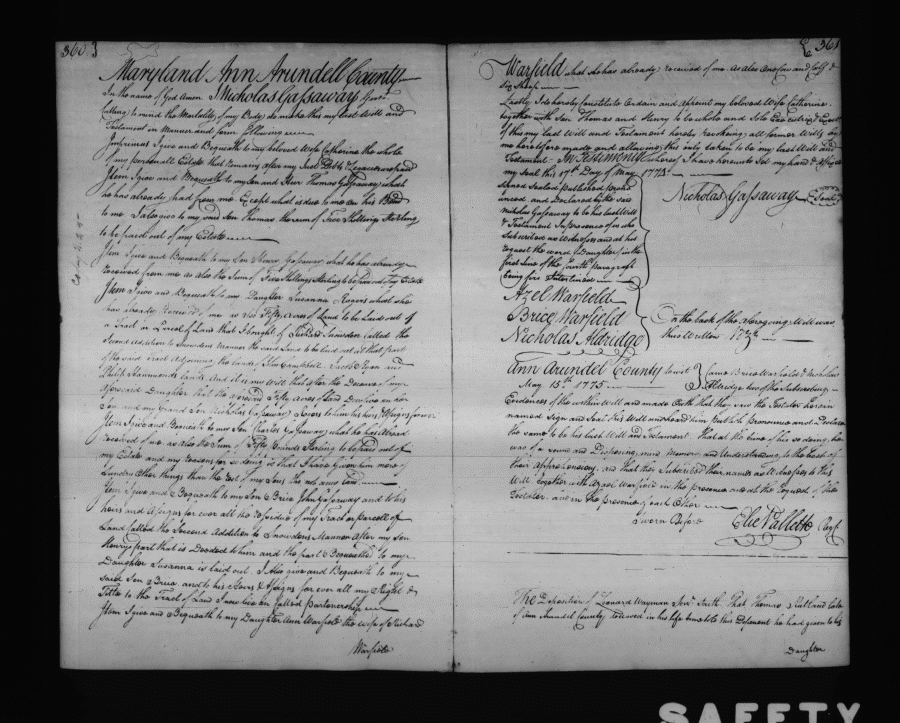 360
Maryland Ann Arundell County
In the name of God Amen I Nicholas Gassaway
calling to mind the Mortality of my Body do make this my last Will and
Testament in Manner and form following
Imprimis I give and Bequeath to my beloved Wife Catherine the whole
of my personall Estate that remains after my Just Debts & are paid
Item I give and Bequeath to my Son and Heir Thomas Gassaway what
he has already had from me Except what is due to me on his Bond
to me I also give to my said Son Thomas the sum of Five Shillings Sterling
to be paid out of my Estate
Item I give and Bequeath to my Son Henry Gassaway what he has already
received from me as also the Sum of Five Shillings Sterling to be paid out of my Estate
Item I give and Bequeath to my Daughter Susanna Rogers what she
has already Received of me as also Fifty Acres of Land to be Laid out of
a Tract or Parcel of Land that I bought of Snowden Called the
Second Addition to Snowdens Mannor the said Land to be laid out at that part
of the said tract Adjoining the Lands of Campbell, Jacob and
Philip Hammonds Lands And it is my will that after the Decease of my
aforesaid Daughter that the aforesaid Fifty acres of Land Descend on her
Son and my Grand Son Nicholas Gassaway Rogers to him his heirs & Assigns forever
Item I give and Bequeath to my Son Charles Gassaway what he has Already
received of me as also the Sum of Fifty Pounds Sterling to be paid out of
my Estate and my reasons for so doing is that I have Given him more of
Sundry Other things than the Rest of my Sons
Item I give and Bequeath to my Son Brice John Gassaway and to his
heirs and Assigns for ever all the residue of my Tract or parcell of
Land Called the Second Addition to Snowdens Mannor after my Son
Henrys part that is Deeded to him and the part Bequeathed to my
Daughter Susanna is laid out I Also give and Bequeath to my
said Son Brice and to his Heirs & Assigns for ever all my Right &
Title to the Tract of Land I now live on Called partnership
Item I give and Bequeath to my Daughter Ann Warfield the wife of Richard
Warfield
361
Warfield what she has already received of me as also One Cow and Calf &
Six Sheep
Lastly I do hereby Constitute Ordain and Appoint my beloved Wife Catherine
together with Son Thomas and Henry to be whole and Sole Executrix &
of this my last Will and Testament hereby revoking all former Wills by
me heretofore made and allowing this only taken to be my last Will and
Testament In Testimony whereof I have hereunto Set my hand & Affixed
my Seal this 17th Day of May 1773
Signed Sealed published pron
ounced and Declared by the said
Nicholas Gassaway to be his last Will
& Testament In presence of us who
Subscribed as Witnesses and at his
request the word Daughter in the
first Line of the fourth Paragraph
being first Interlined
Nicholas Gassaway Seal
Azel Warfield
Brice Warfield
Nicholas Aldridge
On the back of the aforegoing Will was
thus Written
Ann Arundel County to wit
May 15th 1775
Came Brice Warfield & Nicholas
Aldridge two of the Subscribing
Evidences of the within Will and made Oath that they saw the Testator herein
named Sign and Seal this Will and heard him publish pronounce and Declare
the same to be his last Will and Testament That at the time of his so doing he
was of a sound and Disposing mind Memory and Understanding to the best of
their Apprehensions and that they Subscribed their names as Witnesses to this
Will together with Azel Warfield in the presence and at the request of the
Testator and in the presence of each Other
Sworn Before
Elie Vallette Regr
The Deposition of Leonard Wayman Senr Saith That Thomas Rutland late
of Ann Arundel County told in his life time to this Deponent he had given to his
Daughter
SAFETY